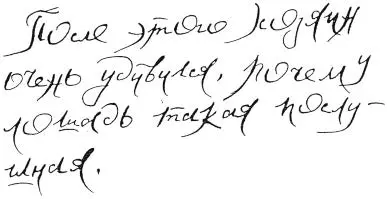 После этого хозяин
очень удувился, почему
лошадь такая послу-
шная.